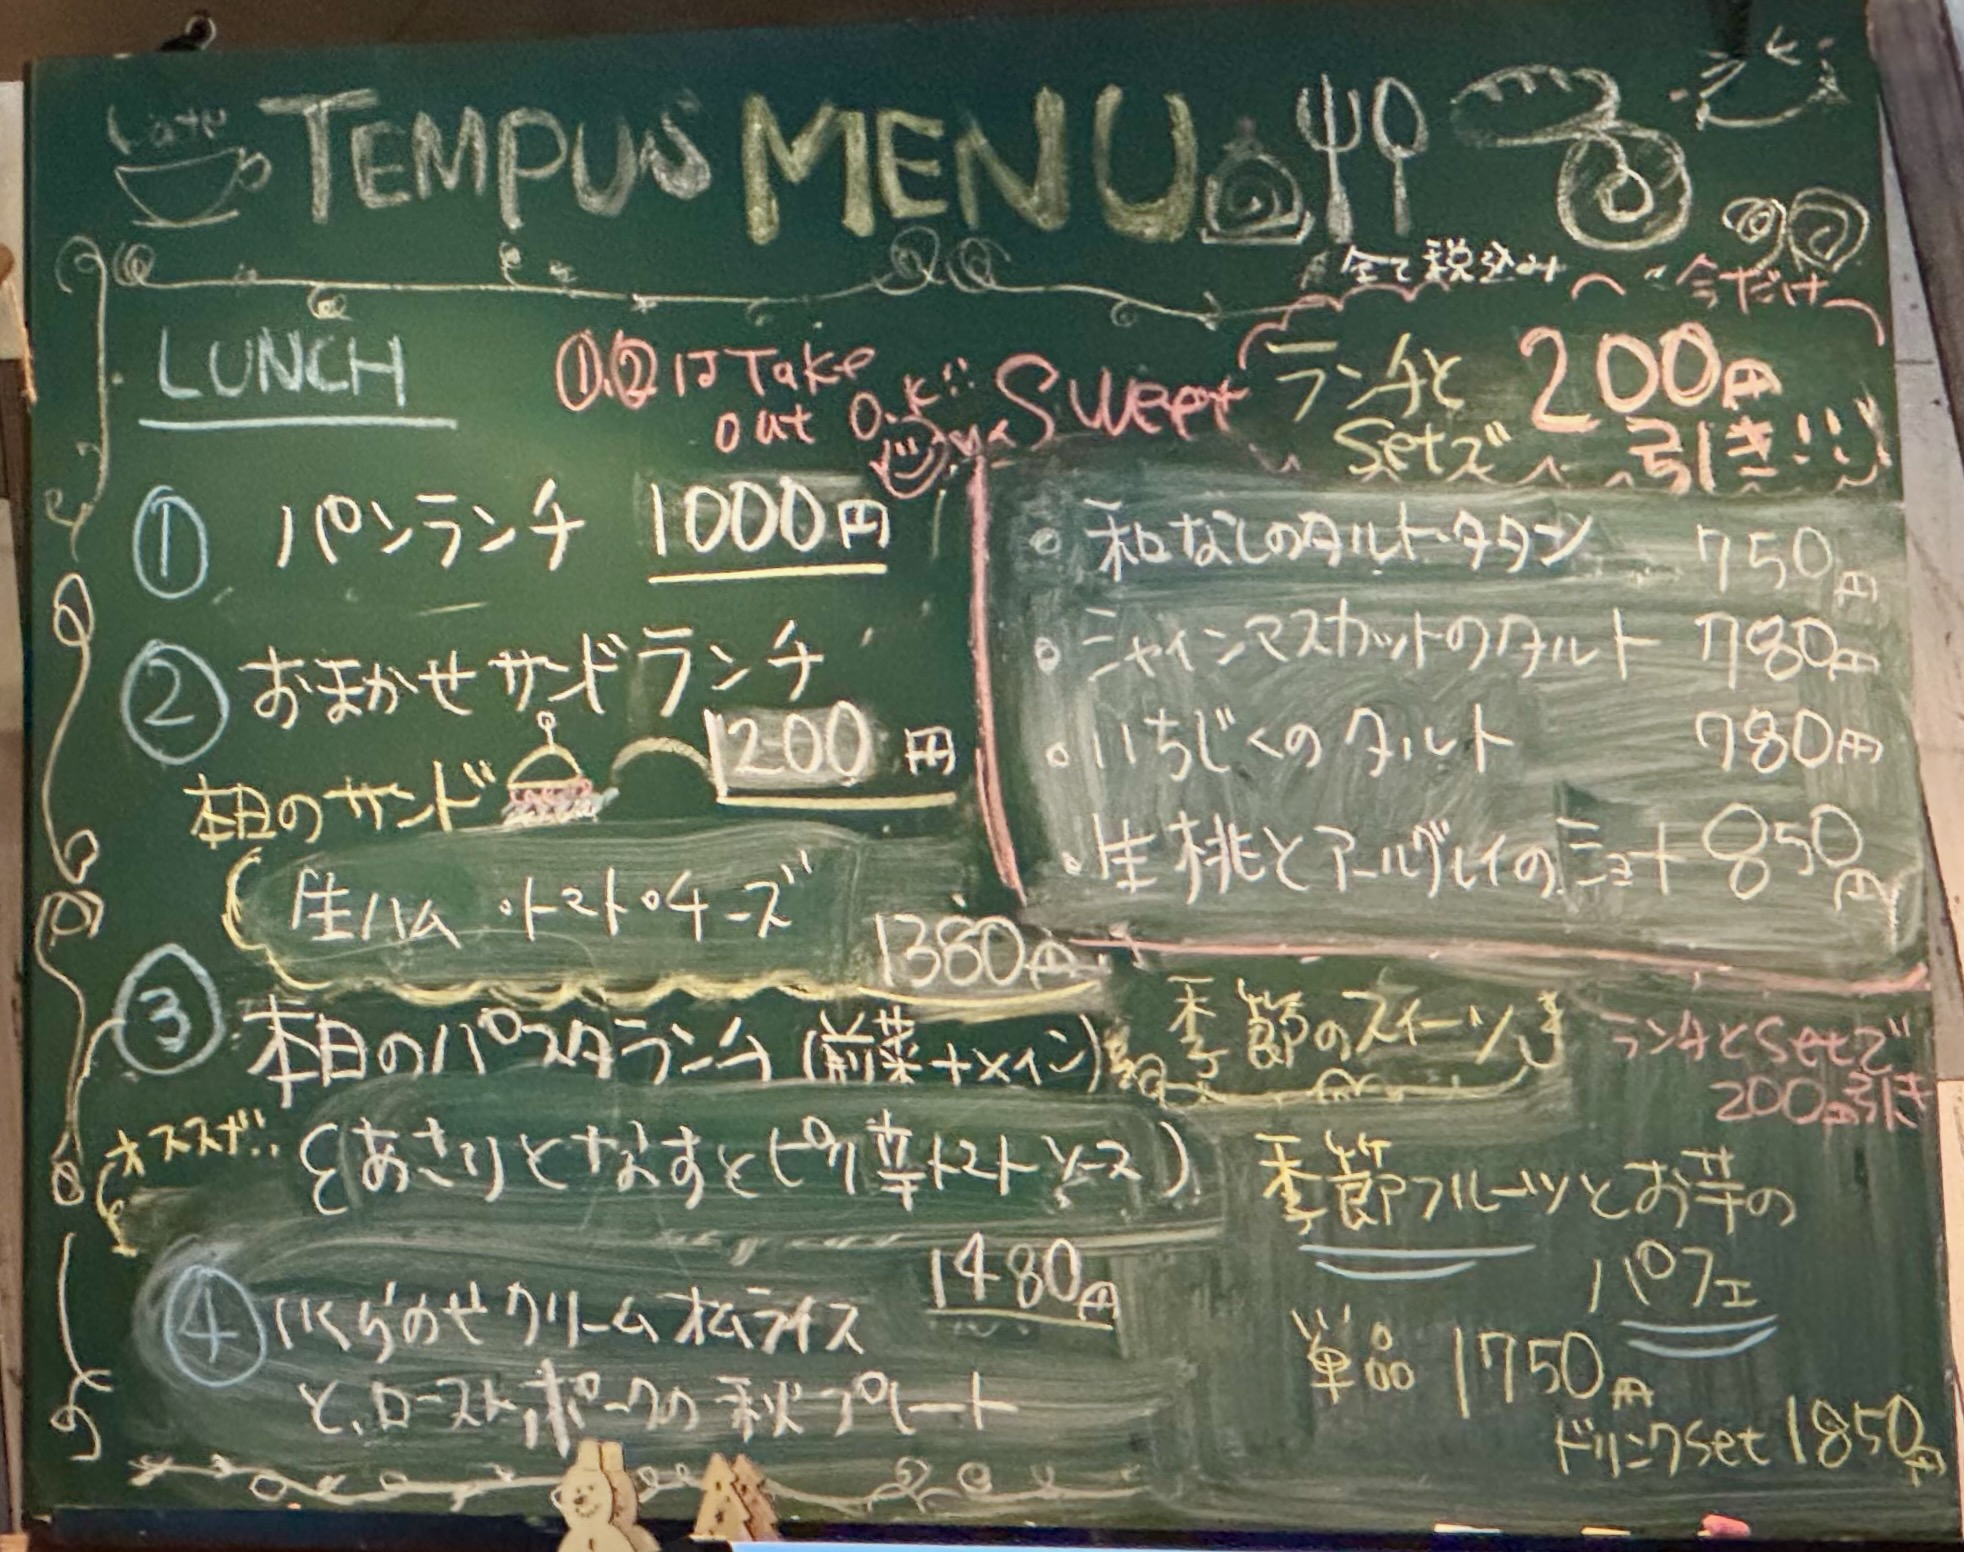 Latte
TEMPUS MENU
全て税込み
LUNCH
①.②は Take
out O.K!!
Sweet
今だけ
ランチと
Setで
200円
引き!!
① パンランチ 1000円
② おまかせサンドランチ
1200円
本日のサンド
生ハム・トマト・チーズ
1380円
③ 本日のパスタランチ (前菜+メイン)
オススメ!!
(あさりとなすとピリ辛トマトソース)
1480円
④ いくらのせクリームオムライス
と、ローストポークの秋プレート
・和なしのタルト・タタン 750円
・シャインマスカットのタルト 780円
・いちじくのタルト 780円
・生桃とアールグレイのショート 850円
季節のスイーツ
ランチとsetで
200円引き
季節フルーツとお芋の
パフェ
単品 1750円
ドリンクset 1850円